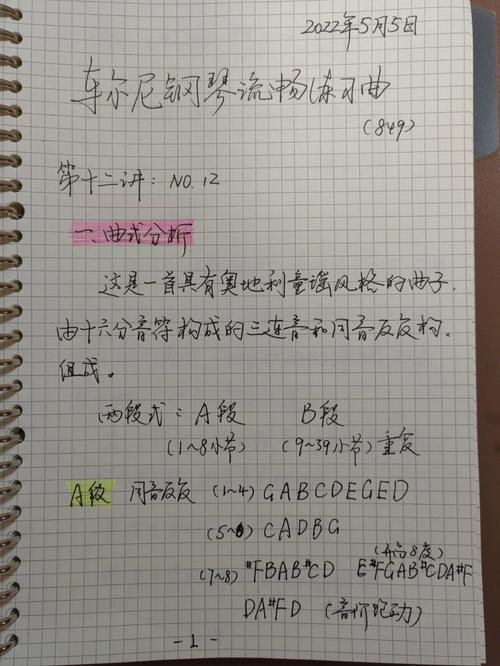 2022年5月5日
车尔尼钢琴流畅练习曲
(849)
第十二讲：NO.12
一、曲式分析
这是一首具有奥地利童谣风格的曲子，
由十六分音符构成的三连音和同音反复构
组成。
两段式：A段 B段
(1~8小节) (9~39小节)重复
A段 同音反复 (1~4) GABCDEGED
(5~6) CADBG
(升高8度)
(7~8) #FBAB#CD E#FGAB#CDA#F
DA#FD (音阶跑动)
-1-